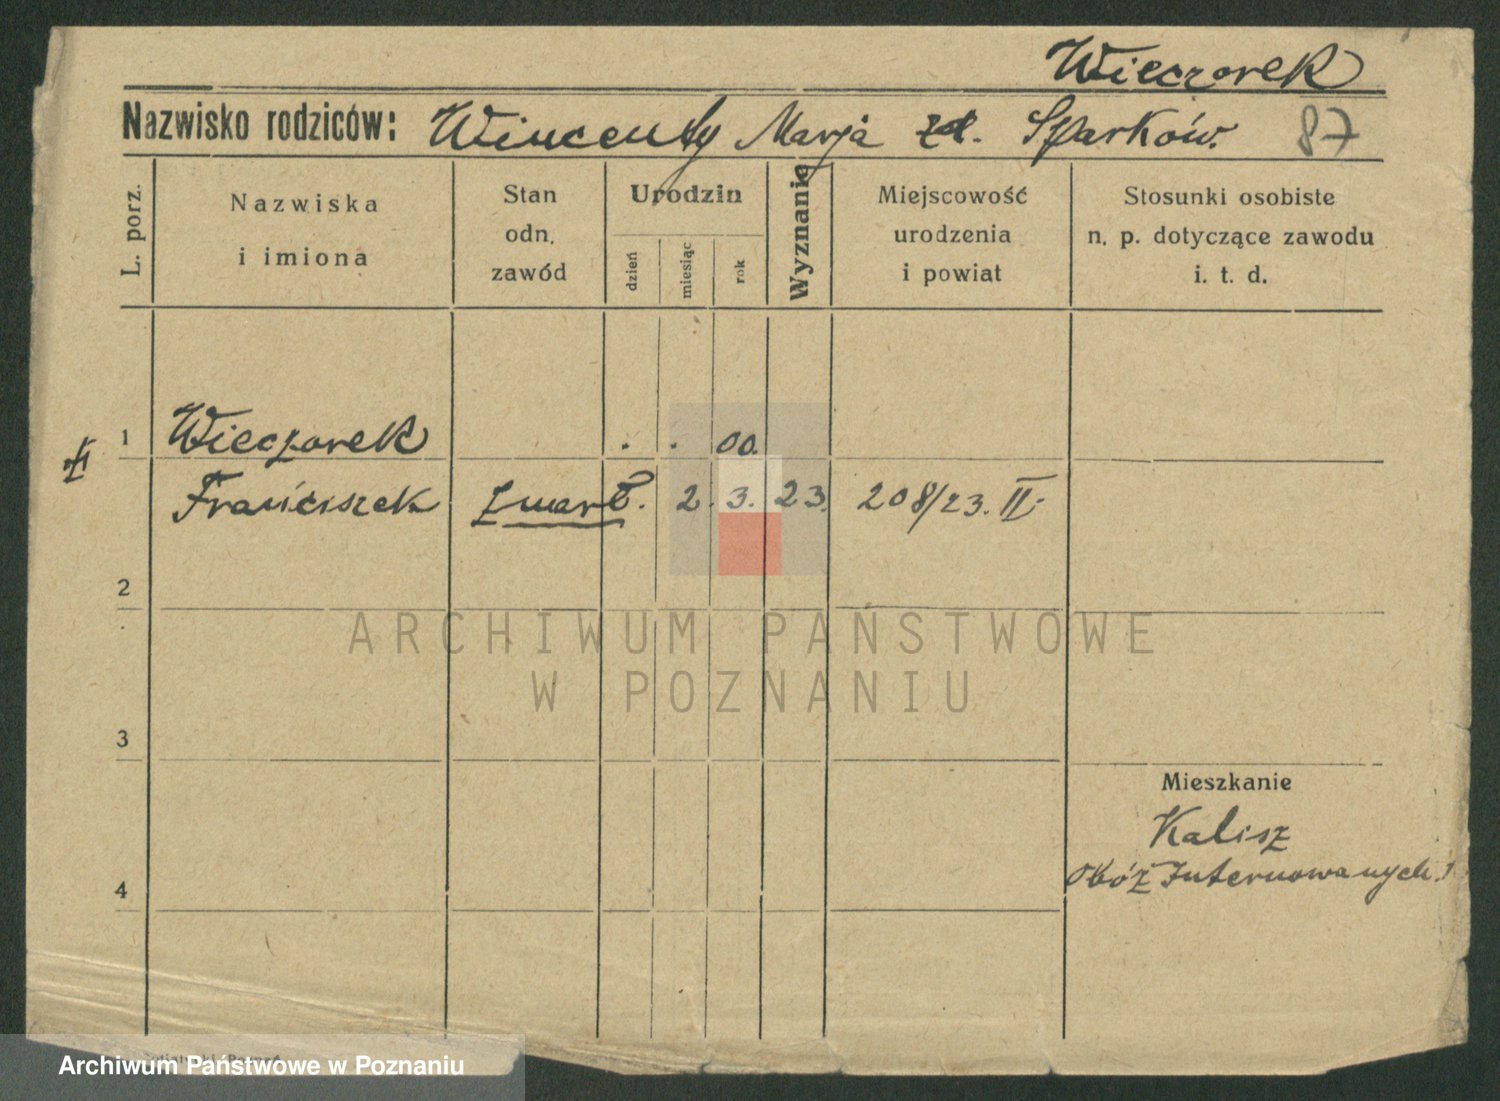 Wieczorek
Nazwisko rodziców: Wincenty Marja zd. Sparków. 87
L. porz.
Nazwiska
i imiona
Stan
odn.
zawód
Urodzin
dzień
miesiąc
rok
Wyznanie
Miejscowość
urodzenia
i powiat
Stosunki osobiste
n. p. dotyczące zawodu
i. t. d.
1 Wieczorek . . 00.
Franciszek zmarł. 2. 3. 23. 208/23. II.
2
3
ARCHIWUM PAŃSTWOWE
W POZNANIU
Mieszkanie
Kalisz
obóz Internowanych.
4
Archiwum Państwowe w Poznaniu